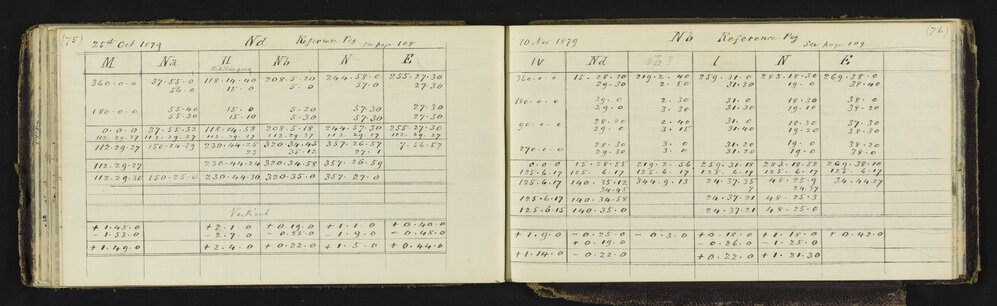 (75) 25th Oct 1879 Nd Reference Peg See page 108
M Na II Nb N E
360.0.0 37.55.0 118.14.40 208.5.20 244.58.0 255.27.30
56.0 15.0 5.0 57.0 27.30
180.0.0 55.40 15.0 5.20 57.30 27.30
55.30 15.10 5.30 57.30 27.30
0.0.0 37.55.32 118.14.58 208.5.18 244.57.30 255.27.30
112.29.27 112.29.27 112.29.27 112.29.27 112.29.27 112.29.27
112.29.27 150.24.59 230.44.25 320.34.45 357.26.57 7.56.57
23 35.12 27.1
112.29.27 230.44.24 320.34.58 357.26.59
112.29.30 150.25.0 230.44.30 320.35.0 357.27.0
Vertical
+1.45.0 +2.1.0 +0.19.0 +1.1.0 +0.40.0
-1.53.0 -2.7.0 -0.25.0 -1.9.0 -0.48.0
+1.49.0 +2.4.0 +0.22.0 +1.5.0 +0.44.0
10 Nov 1879 Nb Reference Peg See page 109 (76)
IV Nd I N E
360.0.0 15.28.30 219.2.40 259.31.0 283.18.30 269.38.0
29.30 2.50 31.30 19.0 38.40
180.0.0 29.0 2.30 31.0 18.30 38.0
29.0 3.20 31.30 19.0 38.20
90.0.0 28.20 2.40 31.0 18.30 37.30
29.0 3.15 31.40 19.20 38.30
270.0.0 28.20 3.0 31.20 19.0 38.20
29.0 3.0 31.20 19.0 38.0
0.0.0 15.28.55 219.2.56 259.31.18 283.18.52 269.38.10
125.6.17 125.6.17 125.6.17 125.6.17 125.6.17 125.6.17
125.6.17 140.35.12 344.9.13 24.37.35 48.25.9 34.44.27
34.45 7 24.57
125.6.17 140.34.58 24.37.21 48.25.3
125.6.15 140.35.0 24.37.21 48.25.0
+1.9.0 -0.25.0 -0.3.0 +0.18.0 +1.18.0 +0.42.0
+0.19.0 -0.26.0 -1.25.0
+1.14.0 -0.22.0 +0.22.0 +1.21.30